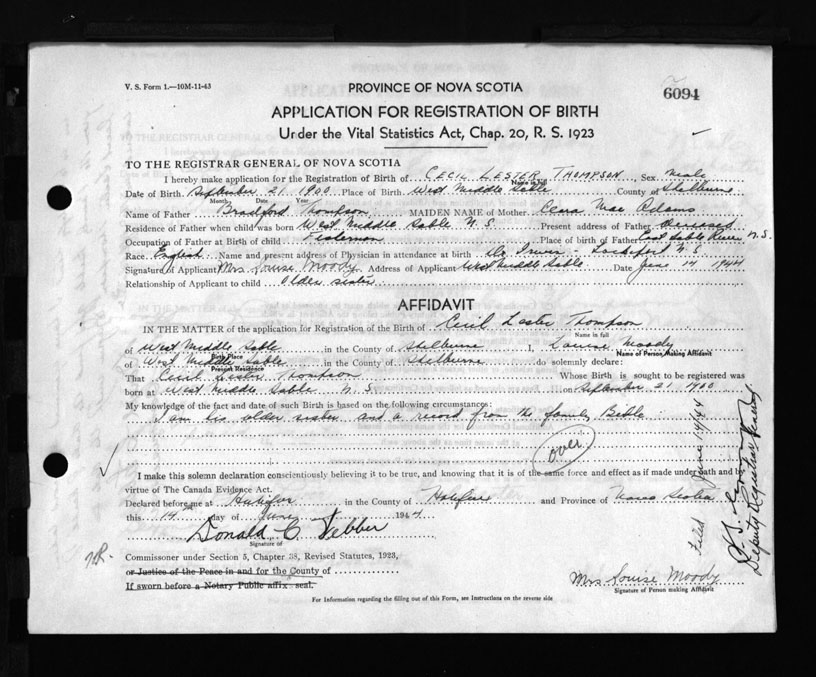 V. S. Form 1.—10M-11-43
PROVINCE OF NOVA SCOTIA
6094
APPLICATION FOR REGISTRATION OF BIRTH
Under the Vital Statistics Act, Chap. 20, R. S. 1923
TO THE REGISTRAR GENERAL OF NOVA SCOTIA
I hereby make application for the Registration of Birth of CECIL LESTER THOMPSON, Sex Male
Name in full
Date of Birth September 21 1900. Place of Birth West Middle Sable County of Shelburne
Month Date Year
Name of Father Bradford Thompson MAIDEN NAME of Mother Clara Mae Adams
Residence of Father when child was born West Middle Sable N. S. Present address of Father deceased
Occupation of Father at Birth of child Fisherman Place of birth of Father East Sable River N.S.
Race English Name and present address of Physician in attendance at birth Dr. Irwin - Lockeport N. S.
Signature of Applicant Mrs Louise Moody Address of Applicant West Middle Sable Date June 14 1944
Relationship of Applicant to child Older sister
AFFIDAVIT
IN THE MATTER of the application for Registration of the Birth of Cecil Lester Thompson
Name in full
of West Middle Sable in the County of Shelburne I, Louise Moody
Birth Place Name of Person Making Affidavit
of West Middle Sable in the County of Shelburne do solemnly declare:
Present Residence
That Cecil Lester Thompson Whose Birth is sought to be registered was
born at West Middle Sable N. S. on September 21 1900
My knowledge of the fact and date of such Birth is based on the following circumstances:
I am his older sister and a record from the family Bible
over
I make this solemn declaration conscientiously believing it to be true, and knowing that it is of the same force and effect as if made under oath and by
virtue of The Canada Evidence Act.
Declared before me at Halifax in the County of Halifax and Province of Nova Scotia
this 14 day of June 1944
Donald C. Webber
Signature of
Commissoner under Section 5, Chapter 38, Revised Statutes, 1923,
or Justice of the Peace in and for the County of
If sworn before a Notary Public affix seal.
Mrs Louise Moody
Signature of Person making Affidavit
For Information regarding the filling out of this Form, see Instructions on the reverse side
Filed June 14/44
Deputy Registrar General